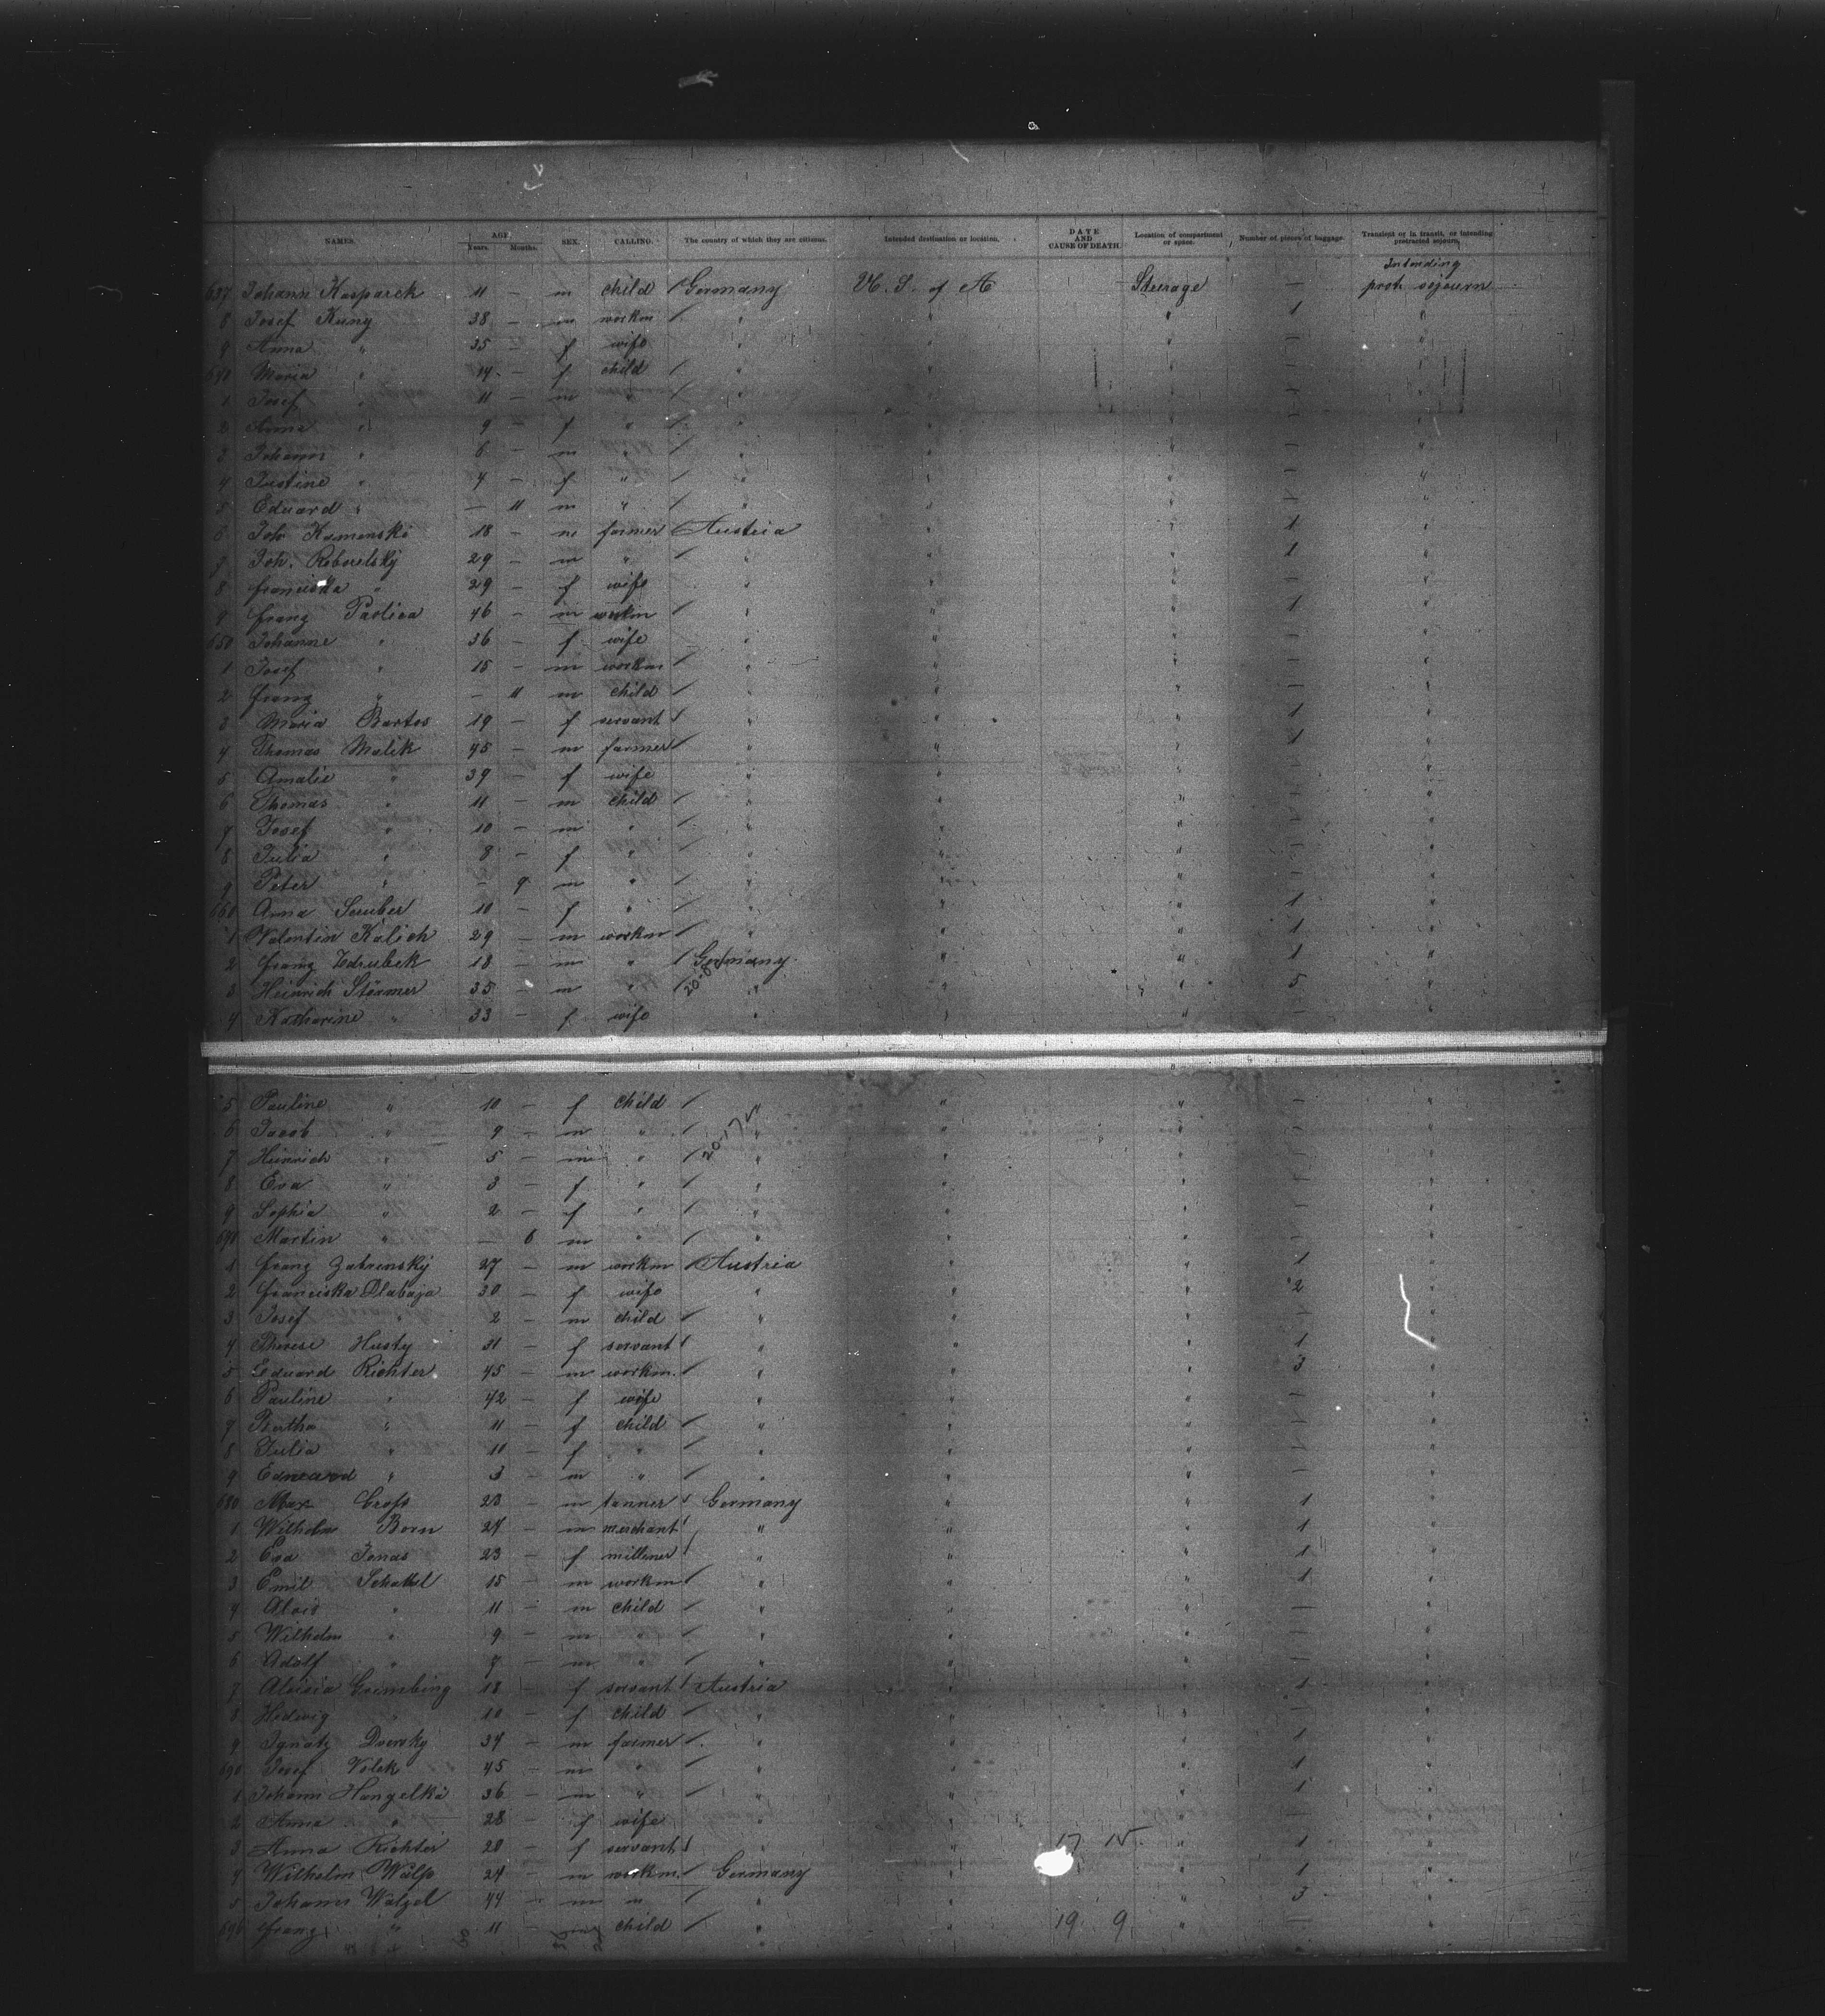 NAMES. AGE. Years. Months. SEX. CALLING. The country of which they are citizens. Intended destination or location. DATE AND CAUSE OF DEATH. Location of compartment or space. Number of pieces of baggage. Transient or in transit, or intending protracted sojourn.
637 Johann Kasparek 11 — m child / Germany U. S. of A Steerage — Intending prot sojourn
8 Josef Kuny 38 — m workm / " " " 1 "
9 Anna " 35 — f wife " " " — "
640 Maria " 14 — f child / " " " — "
1 Josef " 11 — m " / " " " — "
2 Anna " 9 — f " / " " " — "
3 Johann " 6 — m " / " " " — "
4 Justine " 4 — f " / " " " — "
5 Eduard " — 11 m " / " " " — "
6 Joh Kamenski 18 — m farmer / Austria " " 1 "
7 Joh. 29 — m " / " " " 1 "
8 Franciska " 29 — f wife " " " — "
9 Franz Pavlica 46 — m workm / " " " 1 "
650 Johanne " 36 — f wife " " " — "
1 Josef " 15 — m workm / " " " — "
2 Franz " — 11 m child / " " " — "
3 Maria Bartos 19 — f servant / " " " 1 "
4 Thomas Malik 45 — m farmer / " " " 1 "
5 Amalie " 39 — f wife " " " — "
6 Thomas " 11 — m child / " " " — "
7 Josef " 10 — m " / " " " — "
8 Julia " 8 — f " / " " " — "
9 Peter " — 9 m " / " " " — "
660 Anna 10 — f " / " " " 1 "
1 Valentin Kalich 29 — m workm / " " " 1 "
2 Franz Zdrubek 18 — m " / Germany " " 1 "
3 Heinrich Störmer 35 — m " / " " " 5 "
4 Katharine " 33 — f wife " " " — "
5 Pauline " 10 — f child / " " " — "
6 Jacob " 9 — m " / " " " — "
7 Heinrich " 5 — m " / " " " — "
8 Eva " 3 — f " / " " " — "
9 Sophia " 2 — f " / " " " — "
Martin " — 6 m " / " " " — "
1 Franz 27 — m workm / Austria " " 1 "
2 Franciska Dlabaja 30 — f wife " " " 2 "
3 Josef " 2 — m child / " " " — "
4 Therese Husty 31 — f servant / " " " 1 "
5 Eduard Richter 45 — m workm. / " " " 3 "
6 Pauline " 42 — f wife " " " — "
7 Bertha " 11 — f child / " " " — "
8 Julia " 10 — f " / " " " — "
9 " 3 — m " / " " " — "
680 Max 23 — m tanner / Germany " " 1 "
1 Wilhelm Born 24 — m merchant / " " " 1 "
2 Eva Jonas 23 — f milliner / " " " 1 "
3 Emil 15 — m workm / " " " 1 "
4 Alois " 11 — m child / " " " — "
5 Wilhelm " 9 — m " / " " " — "
6 Adolf " 7 — m " / " " " — "
7 Aloisia 18 f servant / Austria " " 1 "
8 Hedwig " 10 — f child / " " " — "
9 Ignatz Dworsky 34 — m farmer / " " " 1 "
690 Josef Volek 45 — m " / " " " 1 "
1 Johann Hangelka 36 — m " / " " " 1 "
2 Anna " 28 — f wife " " " — "
3 Anna Richter 20 — f servant / " " 17 15 " 1 "
4 Wilhelm 24 — m workm. Germany " " 1 "
5 Johann Watzel 44 — m " / " " " 3 "
696 Franz " 11 — m child / " " 19 9 " — "